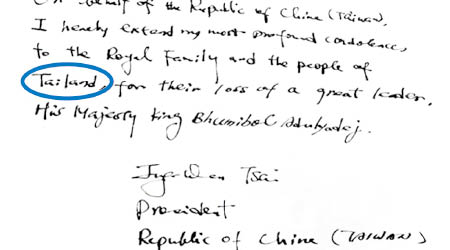 On behalf of the Republic of China (Taiwan),
I hereby extend my most profound condolences
to the Royal Family and the people of
Tailand, for their loss of a great leader,
His Majesty King Bhumibol Adulyadej.
Ing-wen Tsai
President
Republic of China (TAIWAN)